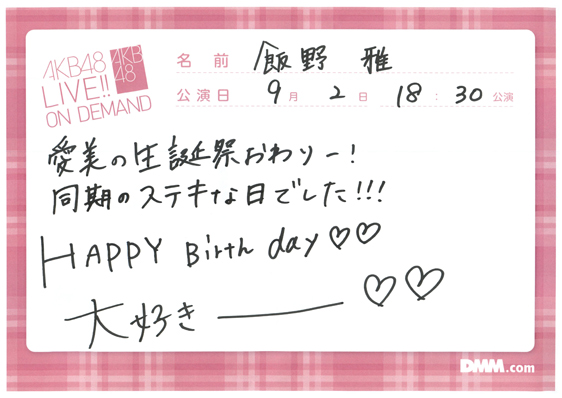 AKB48
LIVE!!
ON DEMAND
AKB
48
名前 飯野 雅
公演日 9月 2日 18:30公演
愛美の生誕祭おわりー!
同期のステキな日でした!!!
HAPPY Birth day♡♡
大好き——♡♡
DMM.com